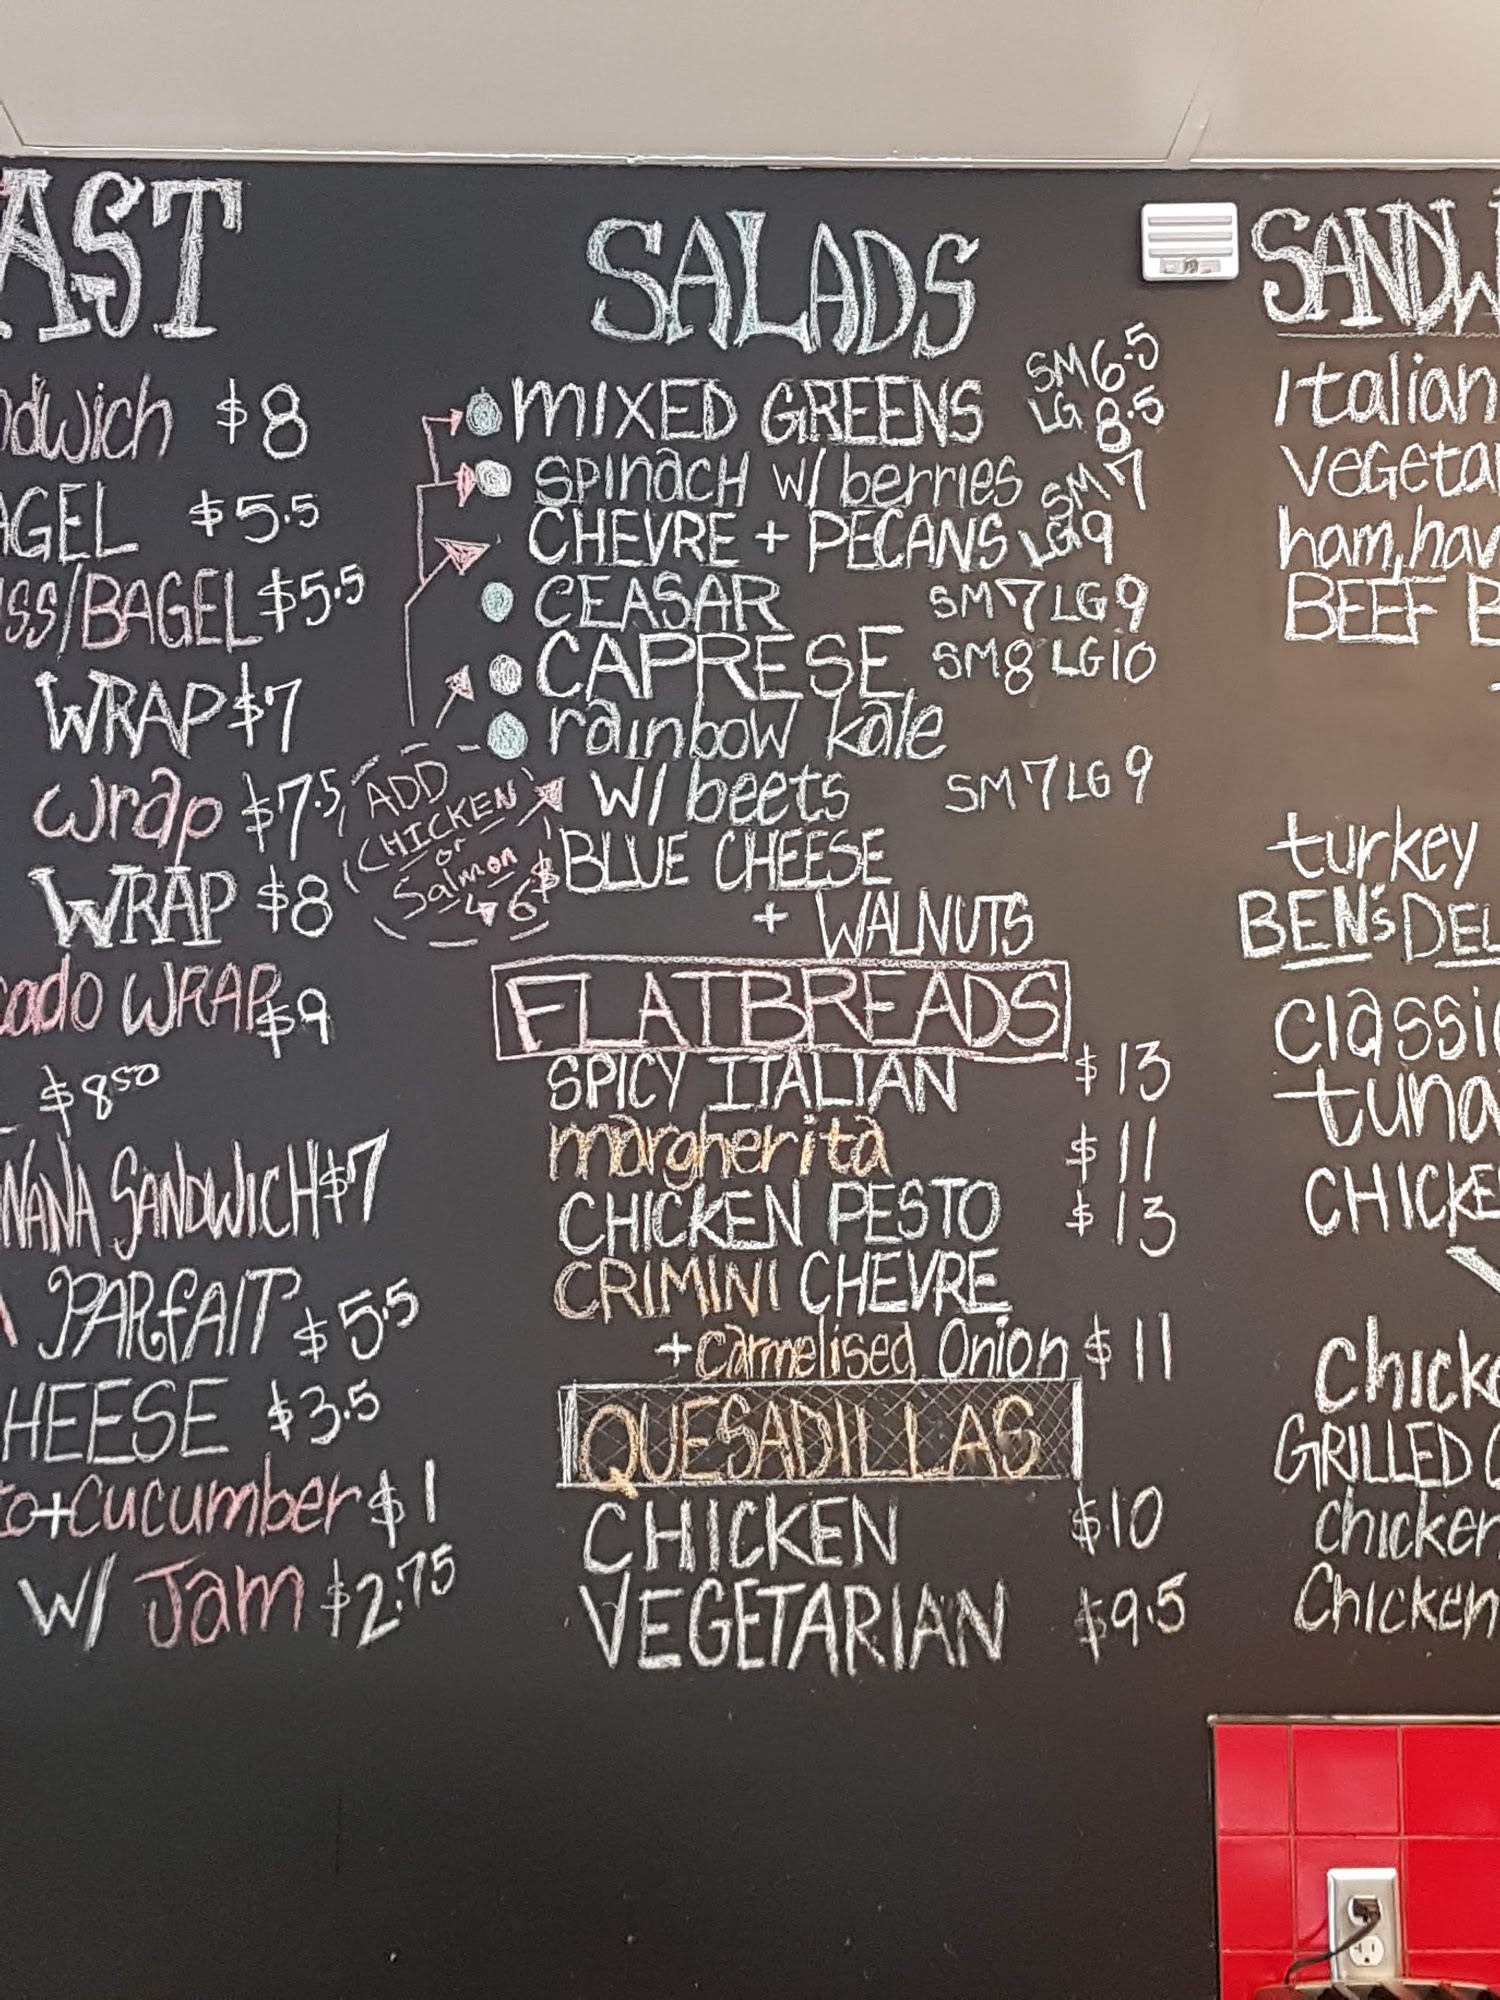 AST
ndwich $8
AGEL $5.5
ss/BAGEL $5.5
WRAP $7
wrap $7.5
WRAP $8
cado WRAP $9
$8.50
NANA SANDWICH $7
PARFAIT $5.5
HEESE $3.5
to+cucumber $1
W/ Jam $2.75
SALADS
MIXED GREENS SM 6.5
LG 8.5
SPINACH W/ berries SM 7
CHEVRE + PECANS LG 9
CEASAR SM 7 LG 9
CAPRESE SM 8 LG 10
rainbow kale
W/ beets SM 7 LG 9
BLUE CHEESE
+ WALNUTS
ADD
CHICKEN
or
Salmon
6$
FLATBREADS
SPICY ITALIAN $13
margherita $11
CHICKEN PESTO $13
CRIMINI CHEVRE
+ Carmelised Onion $11
QUESADILLAS
CHICKEN $10
VEGETARIAN $9.5
SANDW
Italian
vegeta
ham, hav
BEEF B
turkey
BEN's DEL
classic
tuna
CHICKE
chicke
GRILLED C
chicken
Chicken